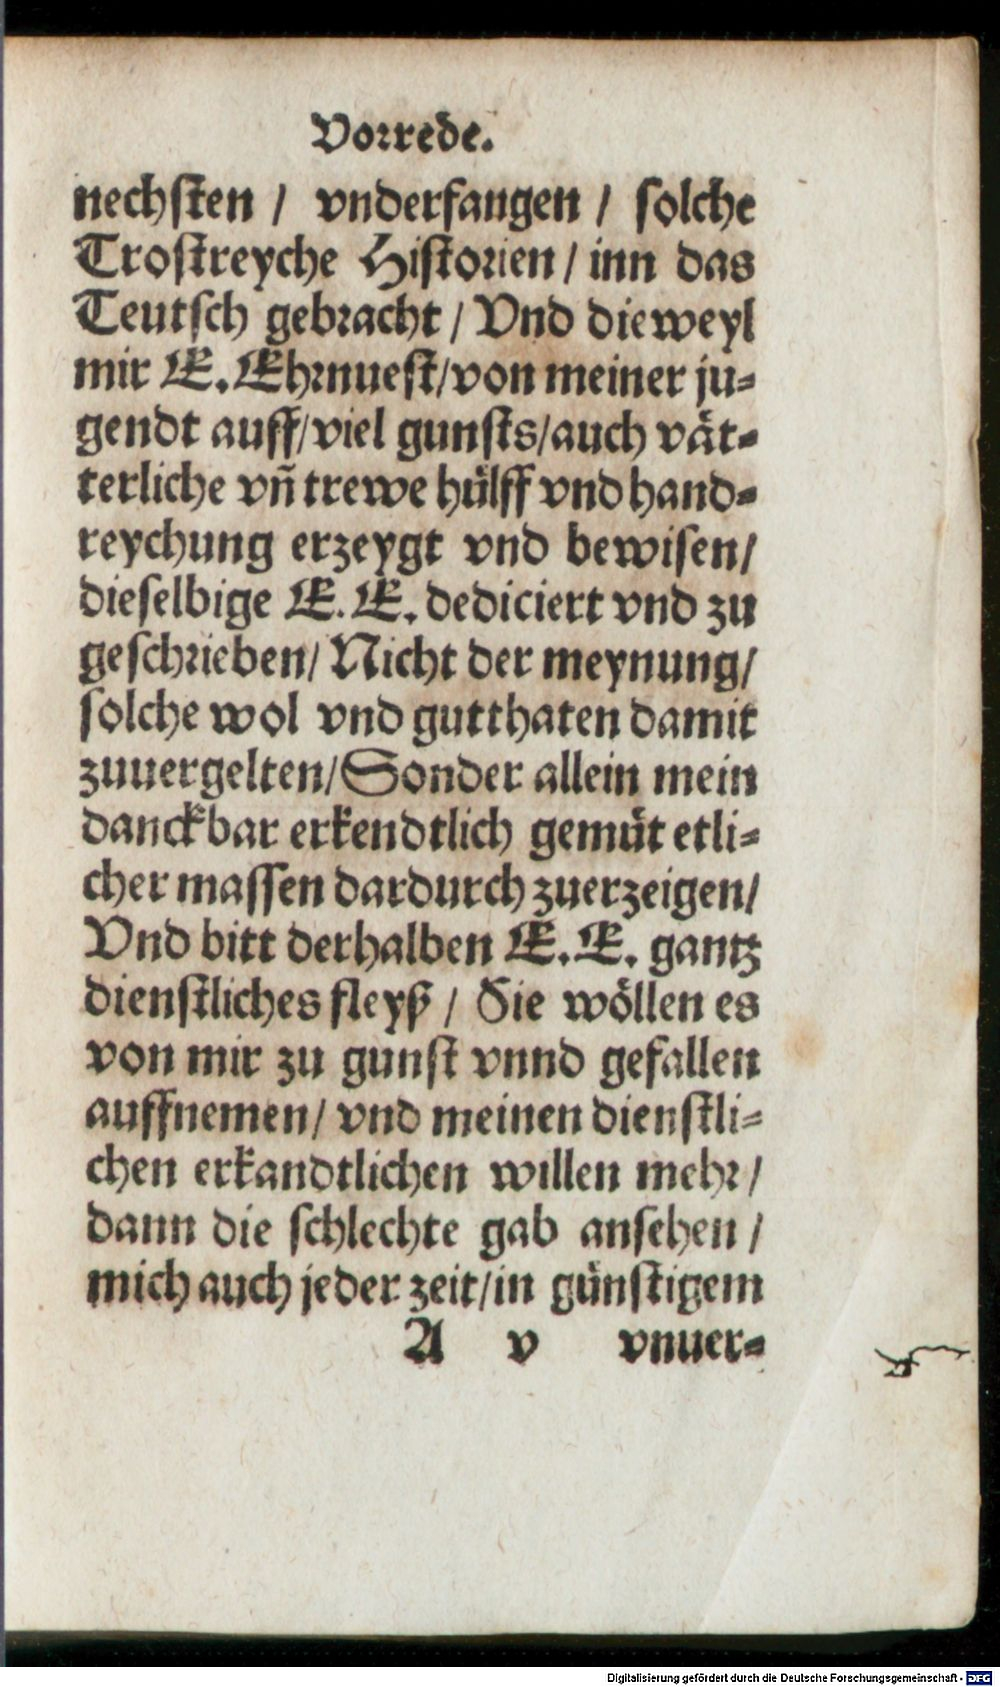 Vorrede.
nechsten / vnderfangen / solche
Trostreyche Historien / inn das
Teutsch gebracht / Vnd dieweyl
mir E. Ehrnuest/von meiner ju-
gendt auff/viel gunsts/auch vät-
terliche vñ trewe hülff vnd hand-
reychung erzeygt vnd bewisen/
dieselbige E. E. dediciert vnd zu
geschrieben/ Nicht der meynung/
solche wol vnd gutthaten damit
zuuergelten/Sonder allein mein
danckbar erkendtlich gemüt etli-
cher massen dardurch zuerzeigen/
Vnd bitt derhalben E. E. gantz
dienstliches fleyß / Sie wöllen es
von mir zu gunst vnnd gefallen
auffnemen/ vnd meinen dienstli-
chen erkandtlichen willen mehr/
dann die schlechte gab ansehen/
mich auch jeder zeit/in günstigem
A v vnuer-
Digitalisierung gefördert durch die Deutsche Forschungsgemeinschaft - DFG